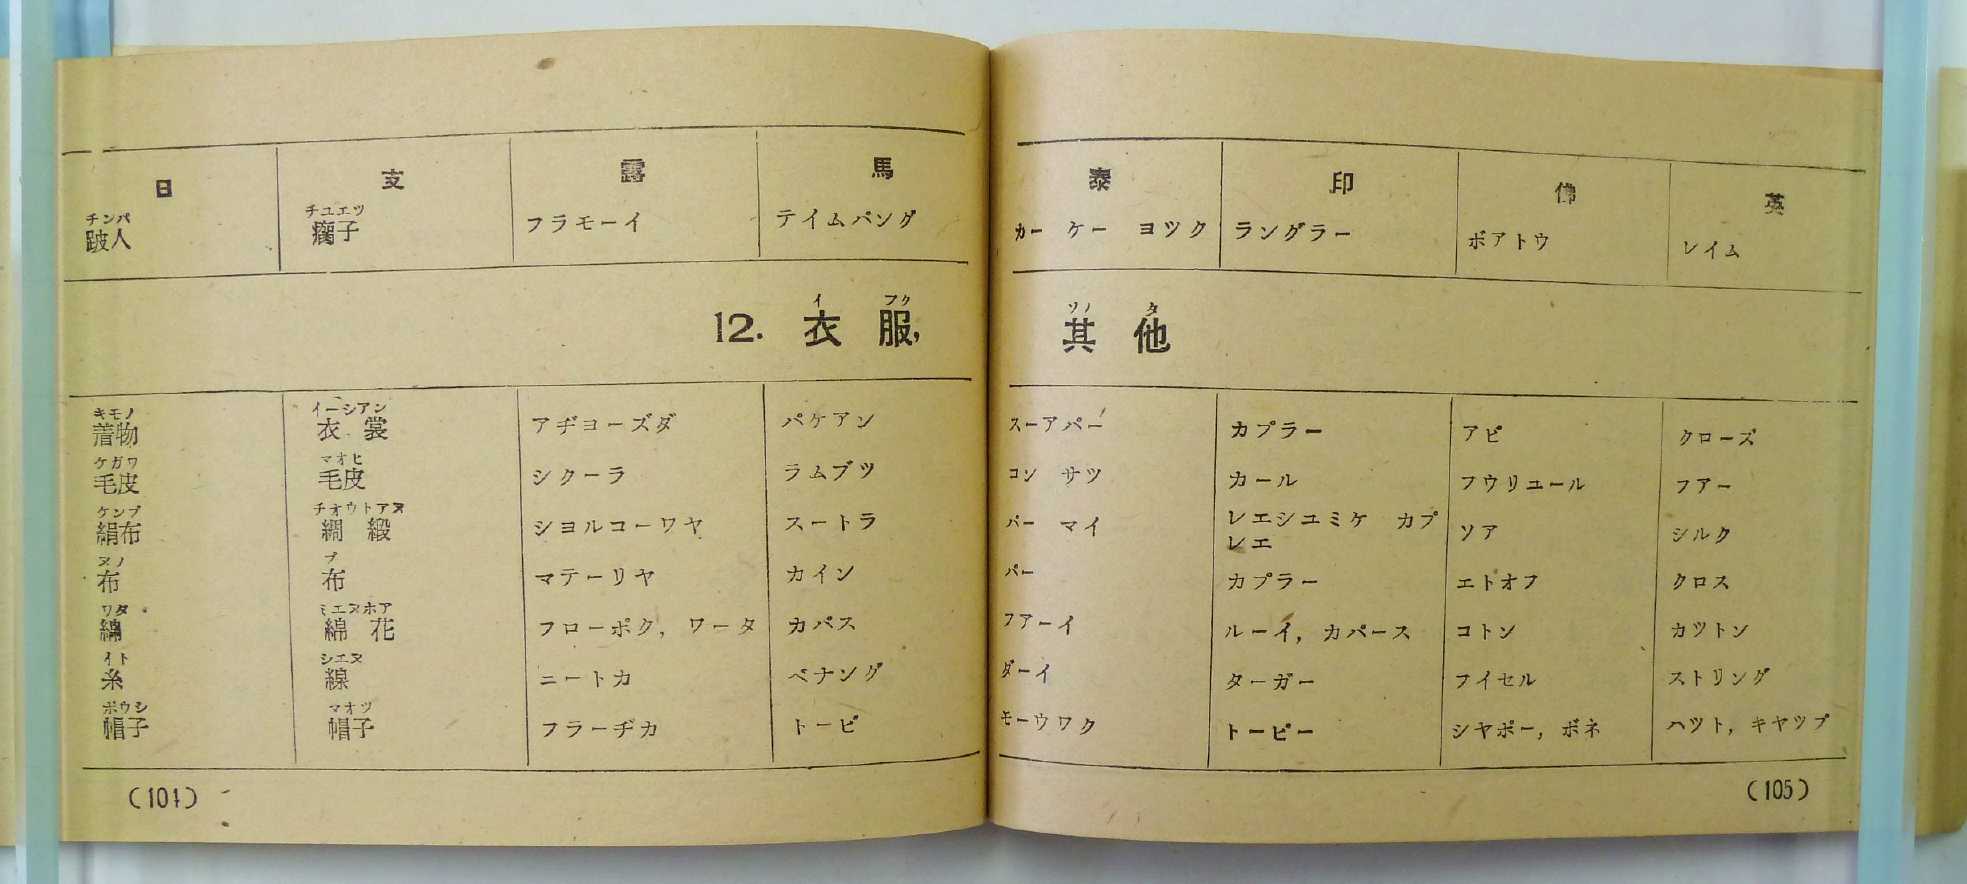 日 支 露 馬 泰 印 佛 英
チンパ チユエツ
跛人 瘸子 フラモーイ テイムパング カー ケー ヨツク ラングラー ボアトウ レイム
イ フク ソノ タ
12. 衣 服, 其 他
キモノ イーシアン
着物 衣 裳 アヂヨーズダ パケアン スーアパー カプラー アピ クローズ
ケガワ マオヒ
毛皮 毛皮 シクーラ ラムブツ コン サツ カール フウリユール フアー
ケンプ チオウトアヌ
絹布 綢 緞 シヨルコーワヤ スートラ パー マイ レエシユミケ カプ ソア シルク
レエ
ヌノ ブ
布 布 マテーリヤ カイン パー カプラー エトオフ クロス
ワタ ミエヌホア
綿 綿 花 フローポク, ワータ カパス フアーイ ルーイ, カパース コトン カツトン
イト シエヌ
糸 線 ニートカ ベナング ダーイ ターガー フイセル ストリング
ボウシ マオツ
帽子 帽子 フラーヂカ トーピ モーウワク トーピー シヤポー, ボネ ハツト, キヤツプ
(104) (105)